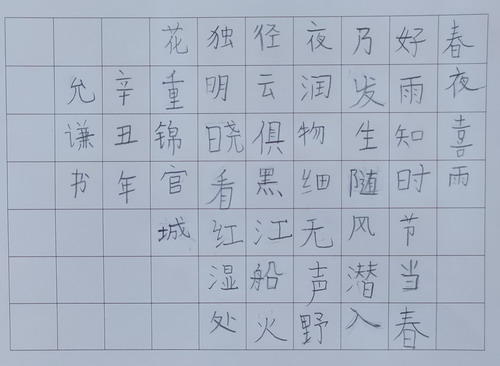 春夜喜雨
好雨知时节当春
乃发生随风潜入
夜润物细无声野
径云俱黑江船火
独明晓看红湿处
花重锦官城
辛丑年
允谦书